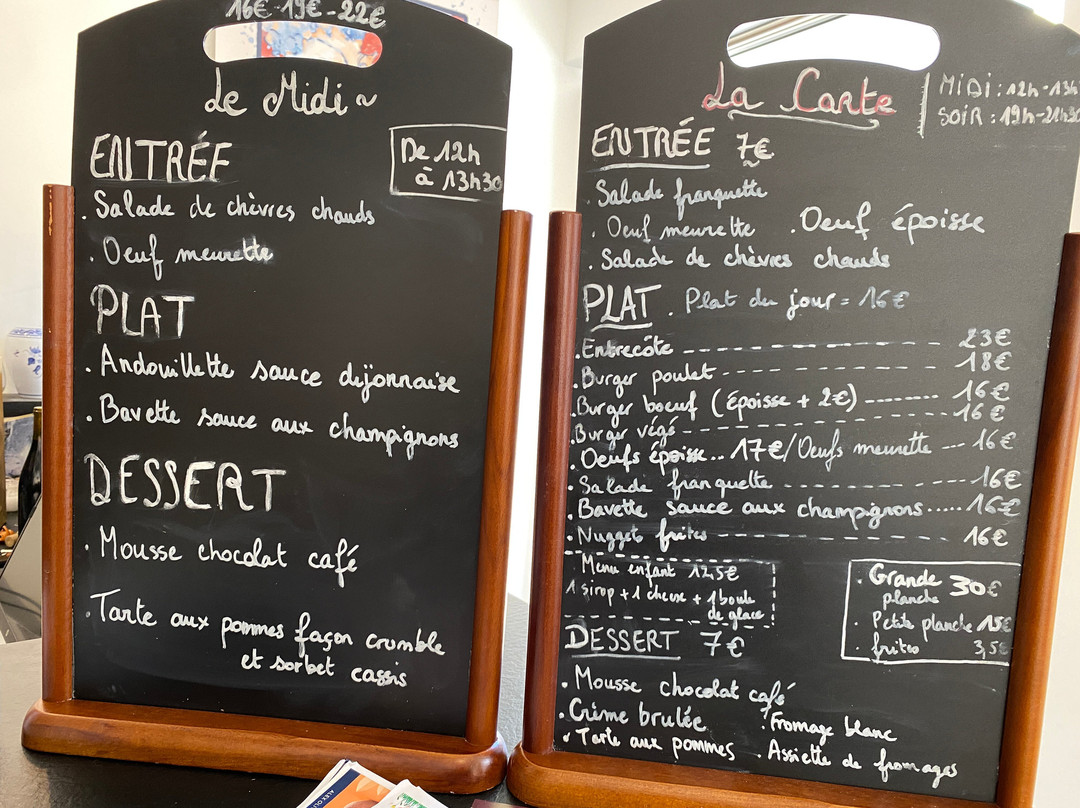 16€-19€-22€
Le Midi ~
ENTRÉE
De 12h
à 13h30
. Salade de chèvres chauds
. Oeuf meurette
PLAT
. Andouillette sauce dijonnaise
. Bavette sauce aux champignons
DESSERT
. Mousse chocolat café
. Tarte aux pommes façon crumble
et sorbet cassis
La Carte
MiDi : 12h-13h
SOIR : 19h-21h30
ENTRÉE 7€
. Salade franquette
. Oeuf meurette . Oeuf époisse
. Salade de chèvres chauds
PLAT . Plat du jour = 16€
. Entrecôte ---------- 23€
. Burger poulet ---------- 18€
. Burger boeuf (époisse + 2€) ------- 16€
. Burger végé ---------- 16€
. Oeufs époisse... 17€/Oeufs meurette --- 16€
. Salade franquette ---------- 16€
. Bavette sauce aux champignons..... 16€
. Nugget frites ---------- 16€
Menu enfant 12,5€
1 sirop + 1 + 1 boule
de glace
. Grande 30€
planche
. Petite planche 15€
. frites 3,5€
DESSERT 7€
. Mousse chocolat café
. Crème brulée . Fromage blanc
. Tarte aux pommes . Assiette de fromages